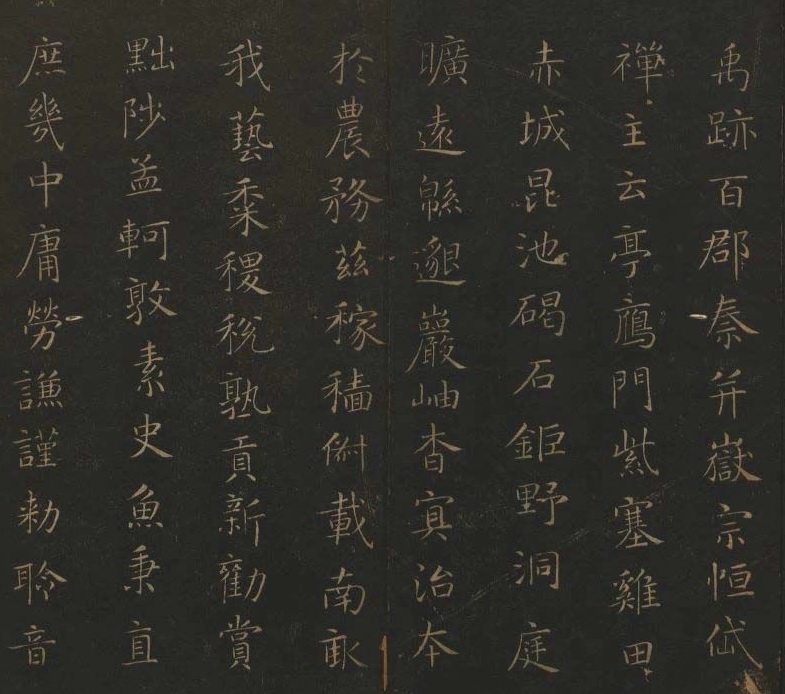 禹跡百郡秦并嶽宗恒岱
禪主云亭鴈門紫塞雞田
赤城昆池碣石鉅野洞庭
曠遠緜邈巖岫杳冥治本
於農務茲稼穡俶載南畝
我藝黍稷稅熟貢新勸賞
黜陟孟軻敦素史魚秉直
庶幾中庸勞謙謹勑聆音